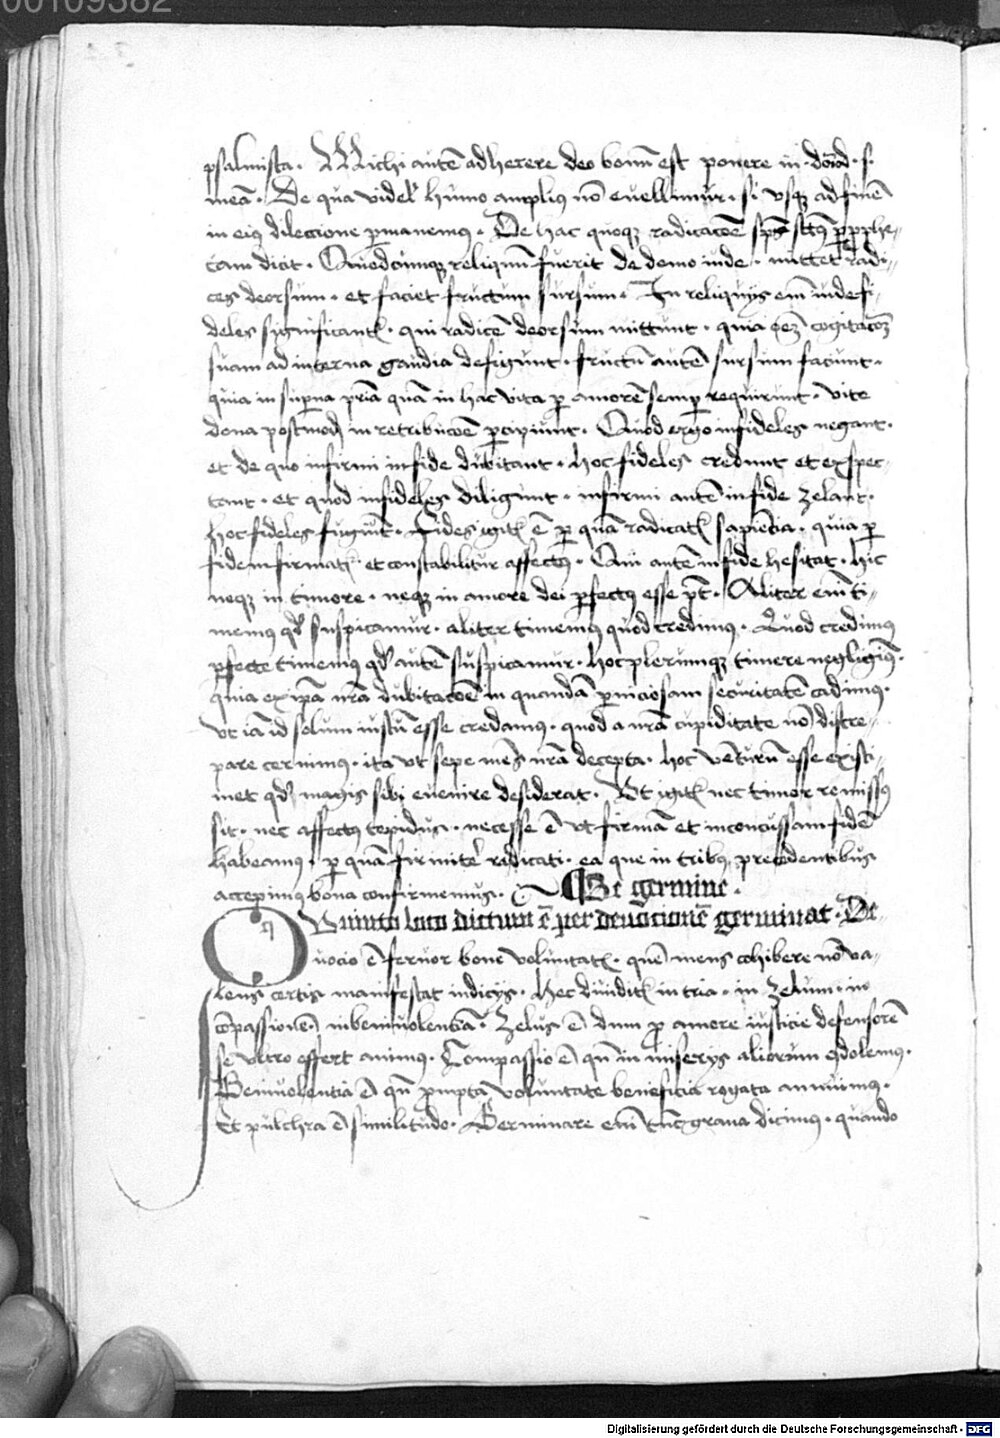 00109382
psalmista · Michi autē adherere deo bonū est ponere in · dōīo · s·
meā · De qua videlꝫ humo ampliꝰ nō euellimur · si vsqꝫ ad finē
in eiꝰ dileccione ꝑmanemꝰ · De hac quoqꝫ radicacōē sp̄s sctꝰ ꝑ ꝓphe-
tam dicit · Quodcūmqꝫ reliquū fuerit de domo iude · mittet radi-
ces deorsum · et faciet fructum sursum · In reliquijs em̄ iude fi-
deles significantꝛ · qui radicē deorsum mittunt · quia om̄ꝫ cogitacōꝫ
suam ad interna gaudia defigunt · fructū autē sursum faciunt ·
quia in suꝑna pr̄ia quā in hac vita ꝑ amorē semꝑ requirunt · vite
dona postmodꝫ in retribucōē ꝑcipiunt · Quod ergo infideles negant ·
et de quo infirmi in fide dubitant · hoc fideles credunt et exspec-
tant · et quod infideles diligunt · infirmi autē in fide zelant ·
hoc fideles fugiūt · Fides igitꝛ ē ꝑ quā radicatꝛ sapiēcia · quia ꝑ
fidem firmatꝛ et constabilitur affectꝰ · Qui autē in fide hesitat · hic
neqꝫ in timore · neqꝫ in amore dei ꝑfectꝰ esse pt̄ · Aliter em̄ ti-
memꝰ qd̄ suspicamur · aliter timemꝰ quod credimꝰ · Quod credimꝰ
ꝑfecte timemꝰ qd̄ autē suspicamur · hoc plerumqꝫ timere negligimꝰ ·
quia ex ip̄a nr̄a dubitacōē in quandā ꝑniciosam securitatē cadimꝰ ·
vt iā id solum iustū esse credamꝰ · quod a nr̄a cupiditate nō discre-
pare cernimꝰ · ita vt sepe mēs nr̄a decepta · hoc vēturū esse existi-
met qd̄ magis sibi euenire desiderat · Vt igitꝛ nec timor remissꝰ
sit · nec affectꝰ tepidus · necesse ē vt firmā et inconcussam fidē
habeamꝰ · ꝑ quā firmitꝭ radicati · ea que in tribꝰ precedentibus
accepimꝰ bona confirmemus · De germine ·
Quinto loco dictum ē per deuocionē germinat · De-
uocio ē feruor bone voluntatꝭ · quē mens cohibere nō va-
lens certis manifestat indicijs · Hec diuiditꝛ in tria · in zelum · in
cōpassionē · in beniuolenciā · Zelus ē dum ꝑ amore iusticie defensorē
se vltro offert animꝰ · Compassio ē qn̄ in miserijs aliorum ꝯdolemꝰ ·
Beniuolentia ē qn̄ ꝓmpta voluntate beneficia rogata annuimꝰ ·
Et pulchra ē similitudo · Germinare em̄ tūc grana dicimꝰ · quando
Digitalisierung gefördert durch die Deutsche Forschungsgemeinschaft - DFG